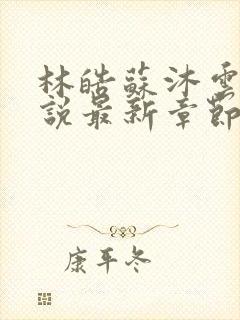 林皓蘇沐雲
說最新章節
康平冬